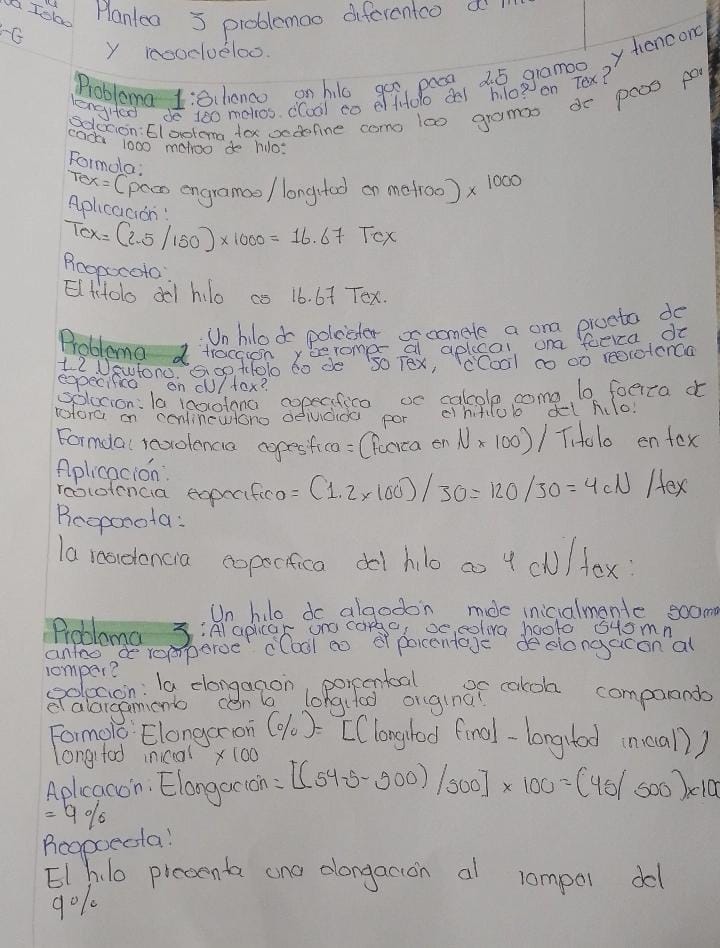 Plantea 3 problemas diferentes
y resoelvelos.
Problema 1: Si tienes on hilo qoe pesa 2.5 gramos y tiene onc
longitod de 150 metros. ¿Coal es el titolo del hilo? en Tex?
Solocion: El sistema tex se define como los gramos de peso por
cada 1000 metros de hilo:
Formola:
Tex = (peso en gramos / longitod en metros) x 1000
Aplicación:
Tex = (2.5 / 150) x 1000 = 16.67 Tex
Respoesta:
El titolo del hilo es 16.67 Tex.
Problema 2 : Un hilo de poliester se somete a ona proeba de
tracción y se rompe al aplicar ona foerza de
1.2 Newtons. Si so titolo es de 30 Tex, ¿Coal es so resistencia
especifica en cN/tex?
Solocion: la resistencia especifica se calcola como la foerza de
rotora en centinewtons dividida por el titolo del hilo:
Formola: resistencia especifica = (foerza en N x 100) / Titolo en tex
Aplicación:
resistencia especifica = (1.2 x 100) / 30 = 120 / 30 = 4 cN / tex
Respoesta:
la resistencia especifica del hilo es 4 cN/tex:
Problema 3 : Un hilo de algodón mide inicialmente 500mm
Al aplicar ona carga, se estira hasta 545 mm
antes de romperse ¿Coal es el porcentaje de elongacion al
romper?
Solocion: la elongacion porcentoal se calcola comparando
el alargamiento con la longitod original
Formola: Elongacion (%) = [(longitod final - longitod inicial) /
longitod inicial x 100
Aplicación: Elongación = [(545 - 500) / 500] x 100 = (45 / 500) x 10
= 9%
Respoesta:
El hilo presenta ona elongación al romper del
9%